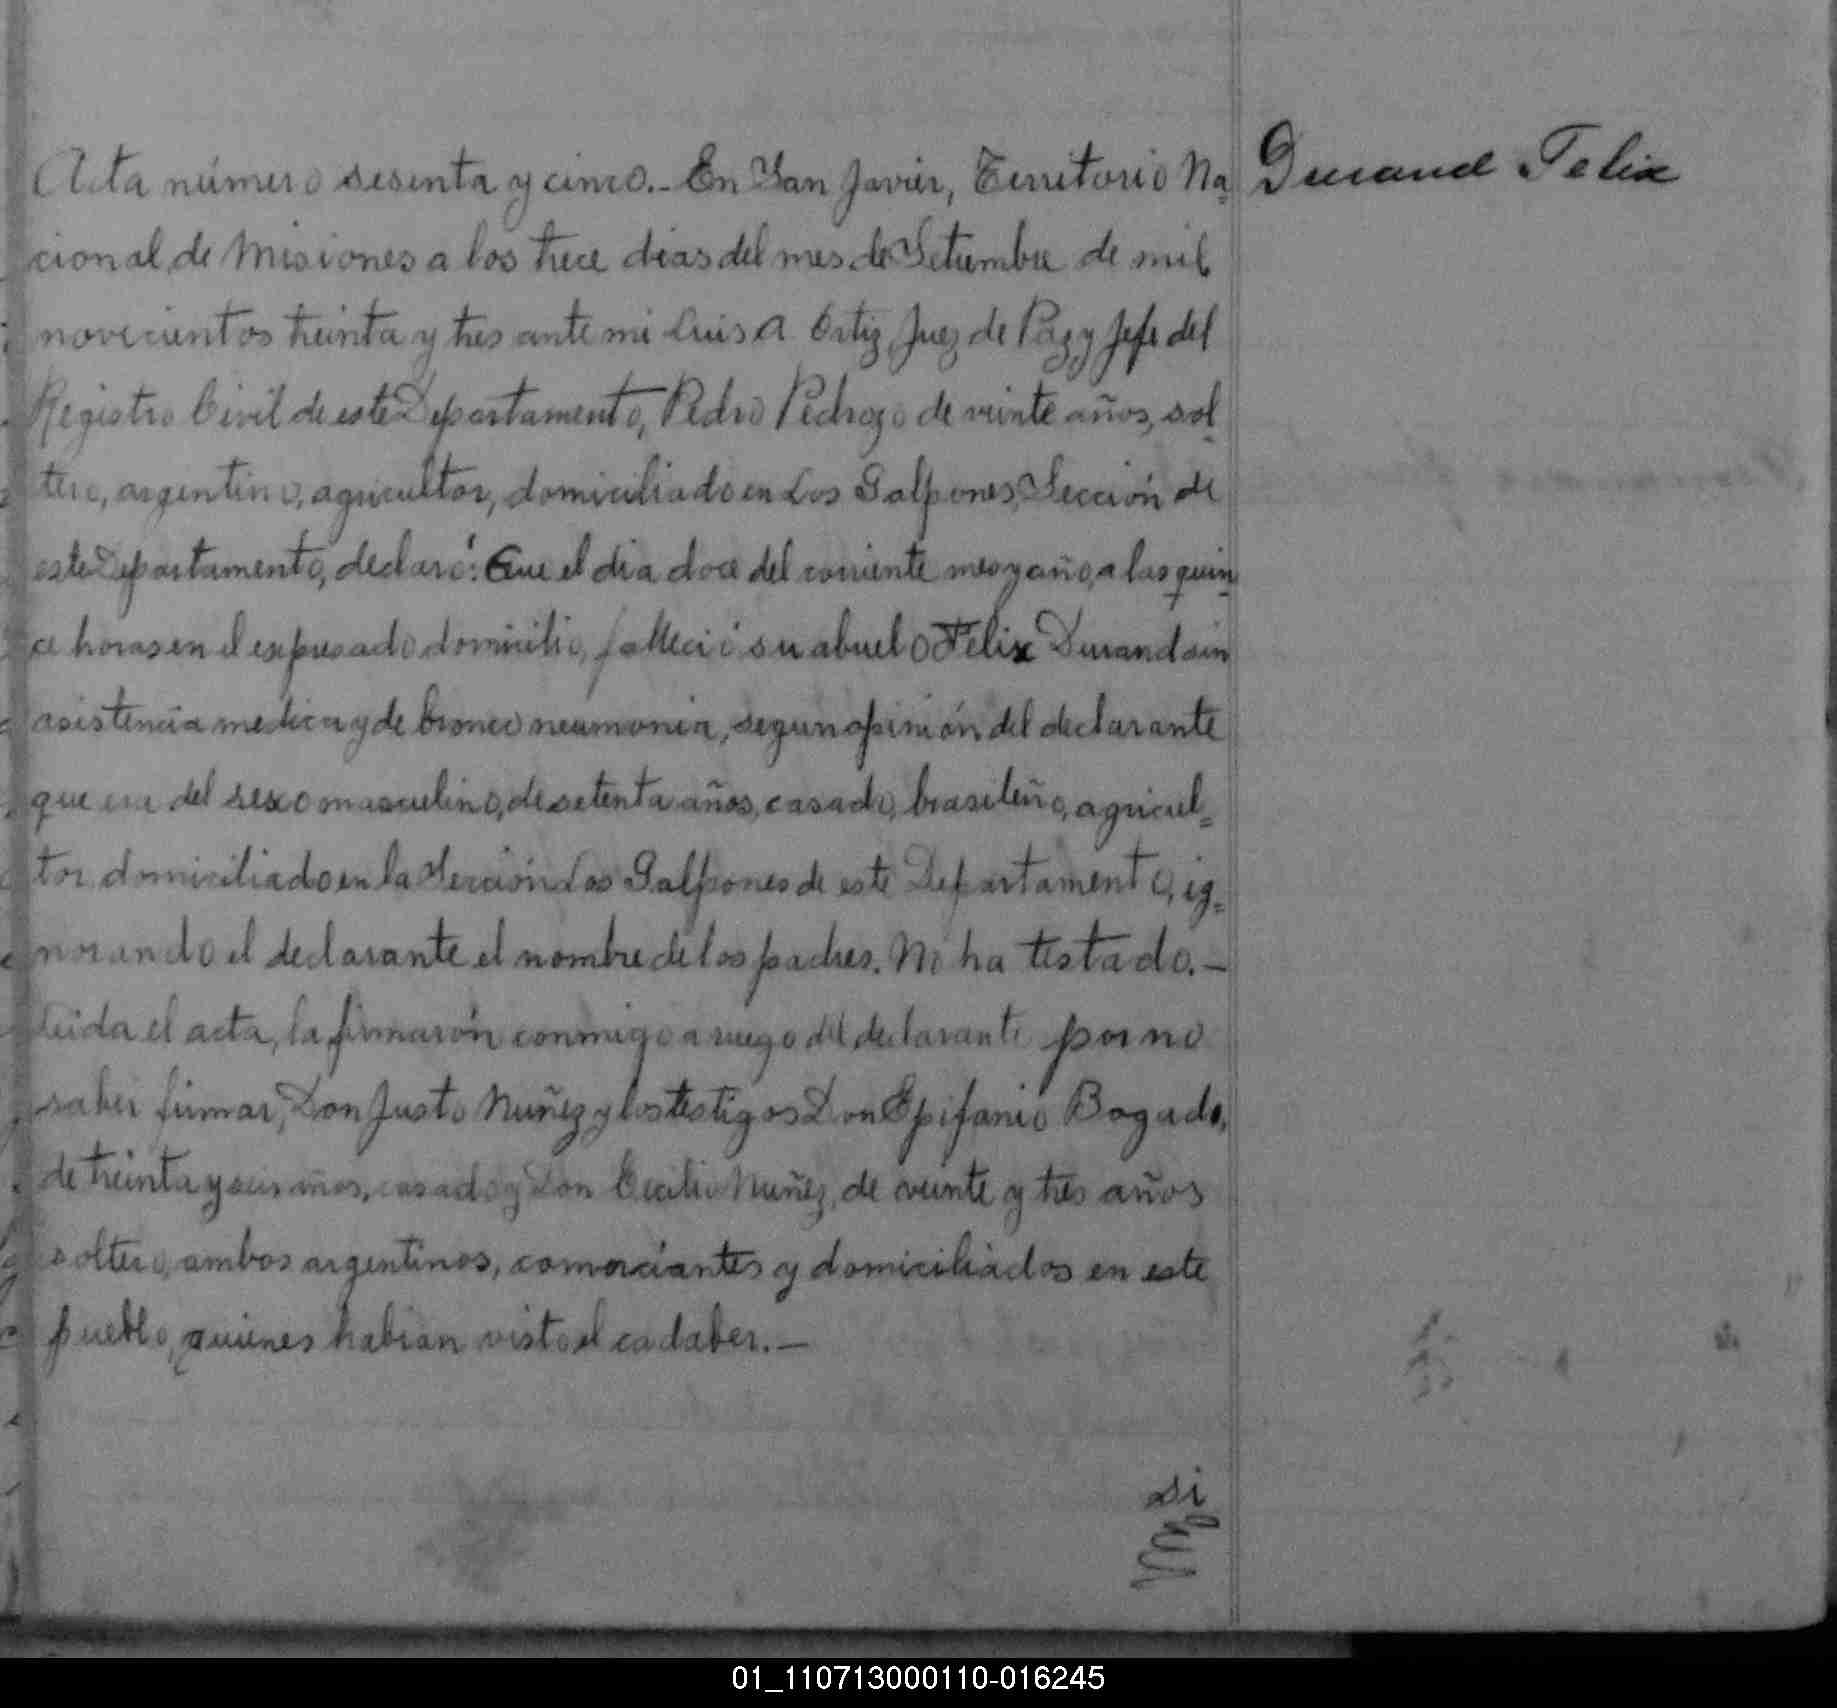 Acta número sesenta y cinco.- En San Javier, Territorio Na=
Durand Felix
cional de Misiones a los trece dias del mes de Setiembre de mil
novecientos treinta y tres ante mi Luis A Ortiz, Juez de Paz y Jefe del
Registro Civil de este Departamento, Pedro Pedrozo de veinte años, sol
tero, argentino, agricultor, domiciliado en Los Galpones, Sección de
este Departamento, declaró: Que el dia doce del corriente mes y año, a las quin
ce horas en el expresado domicilio, falleció su abuelo Felix Durand sin
asistencia medica y de bronco neumonia, segun opinión del declarante
que era del sexo masculino, de setenta años, casado, brasileño, agricul=
tor, domiciliado en la Sección Los Galpones de este Departamento, ig=
norando el declarante el nombre de los padres. No ha testado.-
Leida el acta, la firmarón conmigo a ruego del declarante por no
saber firmar, Don Justo Nuñez y los testigos Don Epifanio Bogado,
de treinta y seis años, casado y Don Cecilio Nuñez, de veinte y tres años
soltero, ambos argentinos, comerciantes y domiciliados en este
pueblo, quienes habian visto el cadaber.-
si
01_110713000110-016245